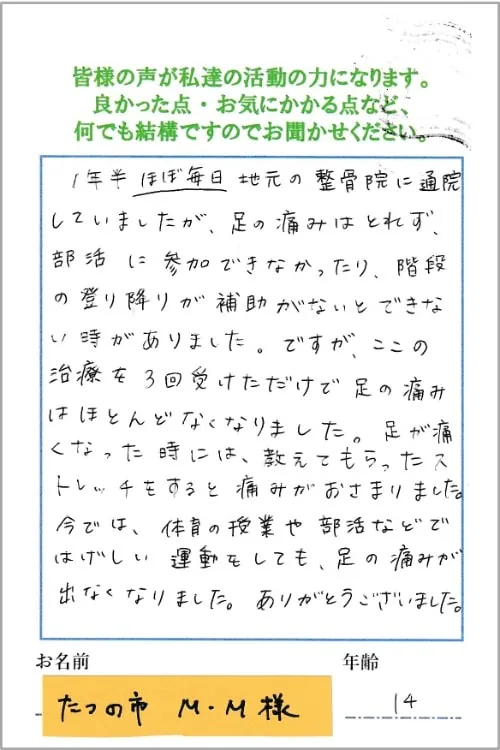 皆様の声が私達の活動の力になります。
良かった点・お気にかかる点など、
何でも結構ですのでお聞かせください。
1年半 ほぼ毎日 地元の整骨院に通院
していましたが、足の痛みはとれず、
部活に参加できなかったり、階段
の登り降りが補助がないとできな
い時がありました。ですが、ここの
治療を3回受けただけで足の痛み
はほとんどなくなりました。足が痛
くなった時には、教えてもらったス
トレッチをすると痛みがおさまりました。
今では、体育の授業や部活などで
はげしい運動をしても、足の痛みが
出なくなりました。ありがとうございました。
お名前 年齢
たつの市 M・M様 14